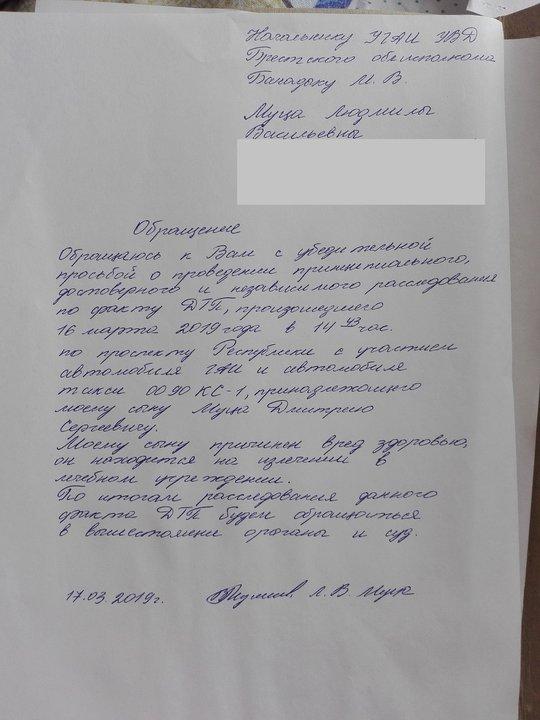 Начальнику УГАИ УВД
Брестского облисполкома
Банадыку М. В.
Муца Людмилы
Васильевны
Обращение
Обращаюсь к Вам с убедительной
просьбой о проведении принципиального,
достоверного и независимого расследования
по факту ДТП, произошедшего
16 марта 2019 года в 14 43 час.
по проспекту Республики с участием
автомобиля ГАИ и автомобиля
такси 0090 КС-1, принадлежащего
моему сыну Муца Дмитрию
Сергеевичу.
Моему сыну причинен вред здоровью,
он находится на излечении в
лечебном учреждении.
По итогам расследования данного
факта ДТП будем обращаться
в вышестоящие органы и суд.
17.03.2019г. Л. В. Муца